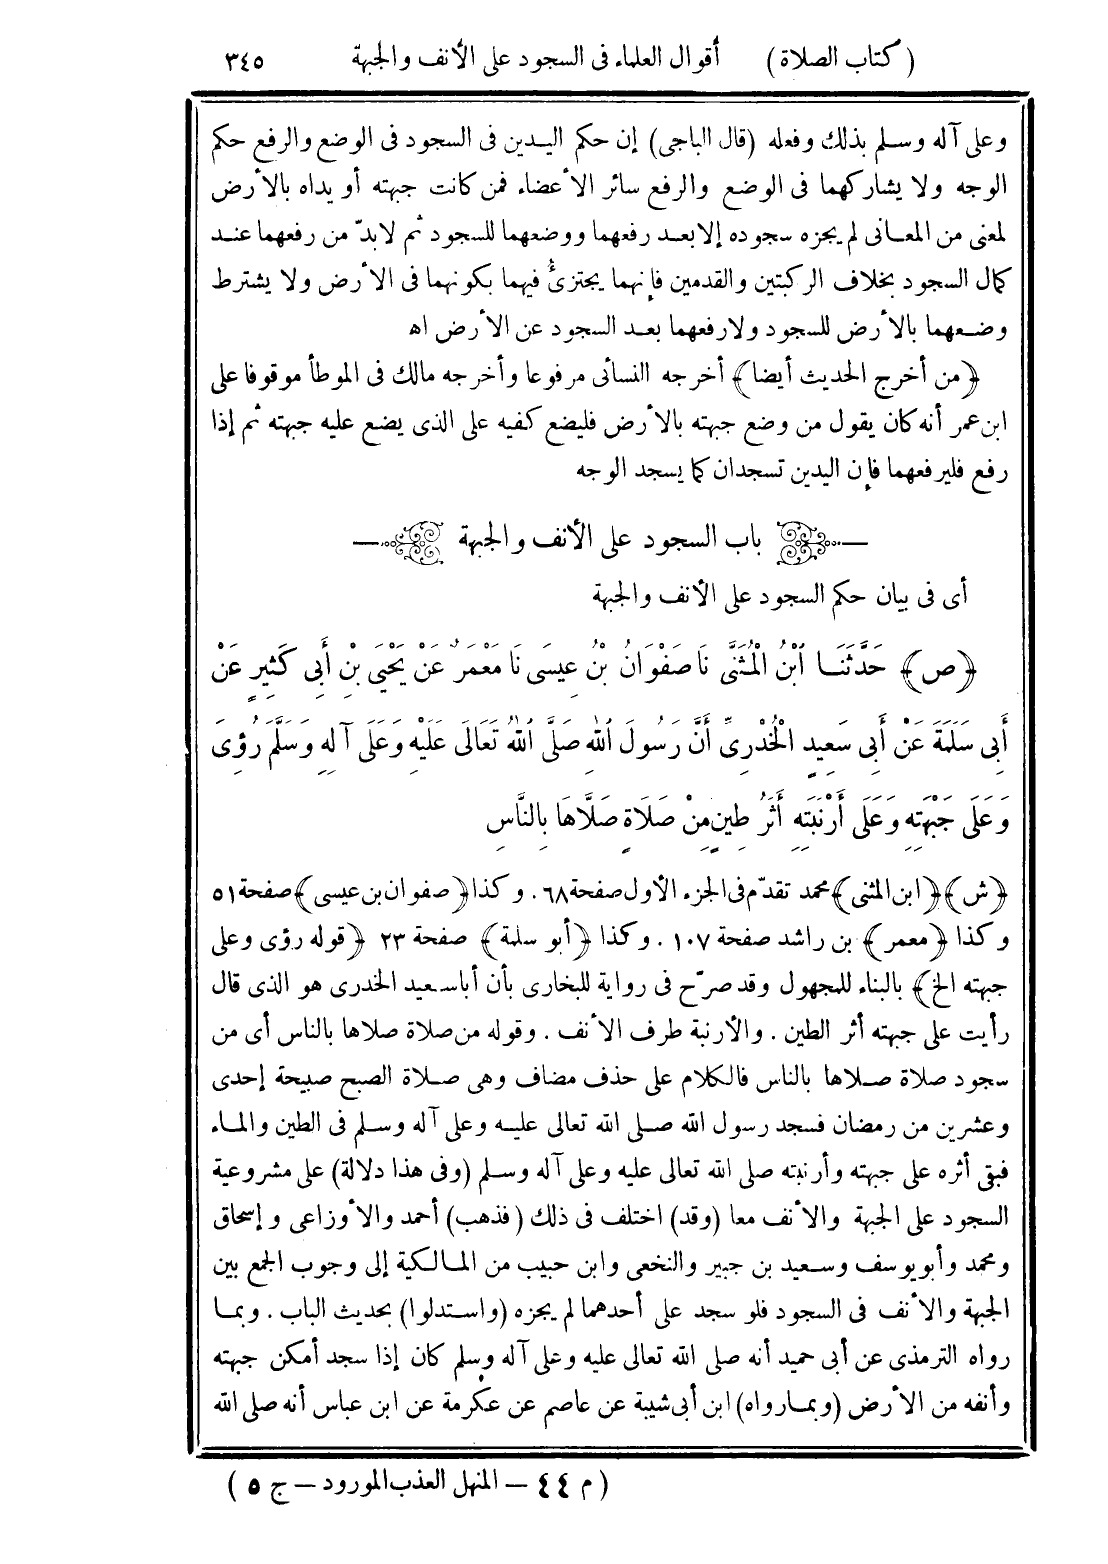 ( كتاب الصلاة ) أقوال العلماء فى السجود على الأنف والجبهة ٣٤٥
وعلى آله وسلم بذلك وفعله (قال الباجى) إن حكم اليدين فى السجود فى الوضع والرفع حكم
الوجه ولا يشاركهما فى الوضع والرفع سائر الأعضاء فمن كانت جبهته أو يداه بالأرض
لمعنى من المعانى لم يجزه سجوده إلا بعد رفعهما ووضعهما للسجود ثم لابدّ من رفعهما عند
كمال السجود بخلاف الركبتين والقدمين فإنهما يجتزئُ فيهما بكونهما فى الأرض ولا يشترط
وضعهما بالأرض للسجود ولا رفعهما بعد السجود عن الأرض اه
﴿من أخرج الحديث أيضا﴾ أخرجه النسائى مرفوعا وأخرجه مالك فى الموطأ موقوفا على
ابن عمر أنه كان يقول من وضع جبهته بالأرض فليضع كفيه على الذى يضع عليه جبهته ثم إذا
رفع فليرفعهما فإن اليدين تسجدان كما يسجد الوجه
باب السجود على الأنف والجبهة
أى فى بيان حكم السجود على الأنف والجبهة
﴿ص﴾ حَدَّثَنَا ابْنُ الْمُثَنَّى نَا صَفْوَانُ بْنُ عِيسَى نَا مَعْمَرٌ عَنْ يَحْيَى بْنِ أَبِى كَثِيرٍ عَنْ
أَبِى سَلَمَةَ عَنْ أَبِى سَعِيدٍ الْخُدْرِىِّ أَنَّ رَسُولَ اللهِ صَلَّى اللهُ تَعَالَى عَلَيْهِ وَعَلَى آلِهِ وَسَلَّمَ رُؤِىَ
وَعَلَى جَبْهَتِهِ وَعَلَى أَرْنَبَتِهِ أَثَرُ طِينٍ مِنْ صَلَاةٍ صَلَّاهَا بِالنَّاسِ
﴿ش﴾ ﴿ابن المثنى﴾ محمد تقدّم فى الجزء الأول صفحة ٦٨ . وكذا ﴿صفوان بن عيسى﴾ صفحة ٥١
وكذا ﴿معمر﴾ بن راشد صفحة ١٠٧ . وكذا ﴿أبو سلمة﴾ صفحة ٢٣ ﴿قوله رؤى وعلى
جبهته الخ﴾ بالبناء للمجهول وقد صرّح فى رواية للبخارى بأن أبا سعيد الخدرى هو الذى قال
رأيت على جبهته أثر الطين . والأرنبة طرف الأنف . وقوله من صلاة صلاها بالناس أى من
سجود صلاة صلاها بالناس فالكلام على حذف مضاف وهى صلاة الصبح صبيحة إحدى
وعشرين من رمضان فسجد رسول الله صلى الله تعالى عليه وعلى آله وسلم فى الطين والماء
فبقى أثره على جبهته وأرنبته صلى الله تعالى عليه وعلى آله وسلم (وفى هذا دلالة) على مشروعية
السجود على الجبهة والأنف معا (وقد) اختلف فى ذلك (فذهب) أحمد والأوزاعى وإسحاق
ومحمد وأبو يوسف وسعيد بن جبير والنخعى وابن حبيب من المالكية إلى وجوب الجمع بين
الجبهة والأنف فى السجود فلو سجد على أحدهما لم يجزه (واستدلوا) بحديث الباب . وبما
رواه الترمذى عن أبى حميد أنه صلى الله تعالى عليه وعلى آله وسلم كان إذا سجد أمكن جبهته
وأنفه من الأرض (وبما رواه) ابن أبى شيبة عن عاصم عن عكرمة عن ابن عباس أنه صلى الله
( م ٤٤ – المنهل العذب المورود – ج ٥ )